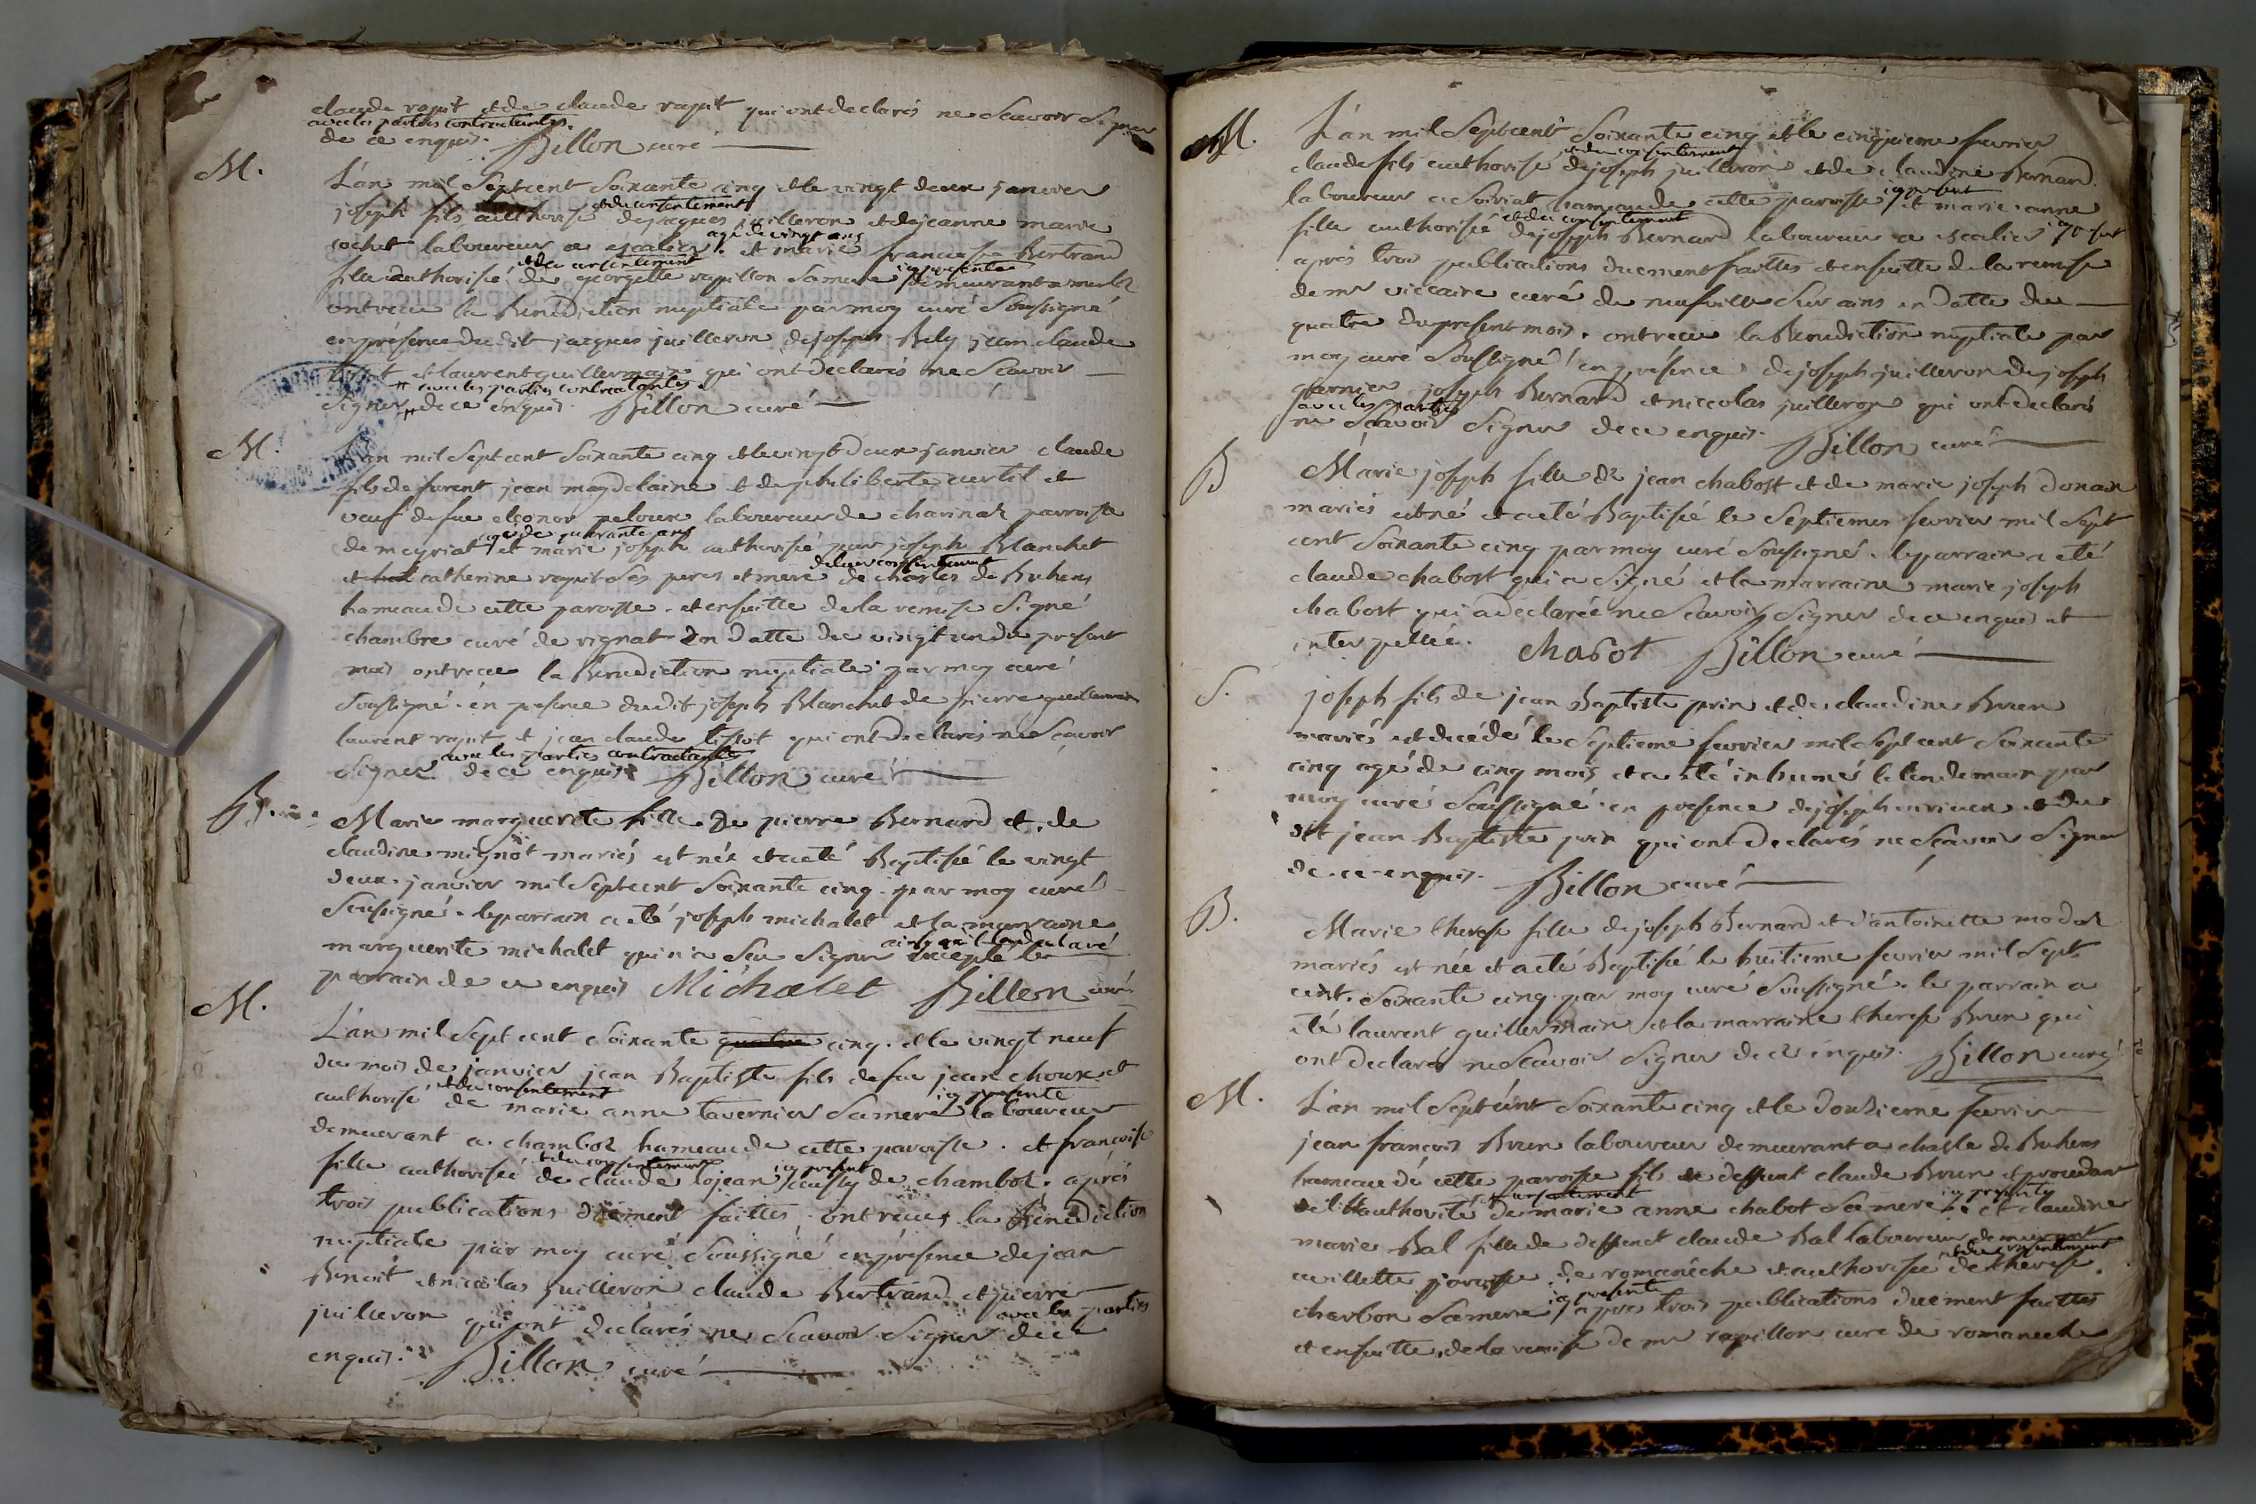 claude rapit et de claude rapit qui ont declarés ne scavoir signer
avec les parties contractantes.
de ce enquis. Billon curé
M.
L'an mil sept cent soixante cinq et le vingt deux janvier
et du consentement
joseph fils authorisé de jacques juilleron et de jeanne marie
agé de vingt ans
sochet laboureur a escalier. et marie francoise Bertrand
et du consentement icy presente
fille authorisé de georgette rapillon sa mere demeurant a
ont recu la Benediction nuptiale par moy curé soussigné
en présence dudit jacques juilleron de joseph Bely jean claude
tissot et laurent guillermain qui ont declarés ne scavoir
avec les parties contractantes
signer de ce enquis. Billon curé
M.
L'an mil sept cent soixante cinq et le vingt deux janvier claude
fils de furent jean magdelaine et de philiberte curtil et
veuf de fue eleonor peloux laboureur de charinaz parroisse
agé de quarante ans
de meyriat et marie joseph authorisé par joseph Blanchet
de leur consentement
et catherine rapit ses peres et mere de chasles de Buhens
hameau de cette paroisse. et ensuitte de la remise signé
chambre curé de rignat en datte du vingt un du present
mois ont recue la Benediction nuptiale par moy curé
soussigné. en presence dudit joseph Blanchet de pierre guillermain
laurent rapit et jean claude tissot qui ont declarés ne scavoir
avec les parties contractantes
signer de ce enquis Billon curé
B.
Marie marguerite fille de pierre Bernard et de
claudine mignot mariés est née et a eté Baptisé le vingt
deux janvier mil sept cent soixante cinq par moy curé
soussigné. le parrain a eté joseph michalet et la marraine
marguerite michalet qui n'a seu signer ainsy qu'il a declaré
excepté le
parrain de ce enquis Michalet Billon curé
M.
L'an mil sept cent soixante quatre cinq. et le vingt neuf
du mois de janvier jean Baptiste fils de fue jean choux et
et du consentement icy presente
authorisé de marie anne tavernier sa mere laboureur
demeurant a chamboz hameau de cette paroisse. et francoise
et du consentement icy present
fille authorisée de claude lojean de chamboz. aprés
trois publications duement faittes, ont recues la Benediction
nuptiale par moy curé soussigné en presence de jean
Benoit et nicolas juilleron claude Bertrand et pierre
avec les parties
juilleron qui ont declarés ne scavoir signer de ce
enquis. Billon curé
M.
L'an mil sept cent soixante cinq et le cinquieme fevrier
et du consentement
claude fils authorisé de joseph juilleron et de claudine Bernard
icy present
laboureur a soiriat hameau de cette paroisse et marie anne
et du consentement
fille authorisée de joseph Bernard laboureur a escalier
aprés trois publications duement faittes et ensuitte de la remise
de mr viccaire curé de neufville sur ains en datte du
quatre du present mois. ont recue la Benediction nuptiale par
moy curé soussigné en présence de joseph juilleron de joseph
garnier joseph Bernard et niccolas juilleron qui ont declarés
avec les parties
ne scavoir signer de ce enquis. Billon curé
B
Marie joseph fille de jean chabost et de marie joseph donain
mariés est né et a eté Baptisé le septieme fevrier mil sept
cent soixante cinq par moy curé soussigné. le parrain a eté
claude chabost qui a signé et la marraine marie joseph
chabost qui a declarée ne scavoir signer de ce enquis et
interpellée. Chabot Billon curé
S.
joseph fils de jean Baptiste prin et de claudine Brun
mariés est decédé le septieme fevrier mil sept cent soixante
cinq agé de cinq mois et a eté inhumé le lendemain par
moy curé soussigné en presence de joseph et du
dit jean Baptiste prin qui ont declarés ne scavoir signer
de ce enquis. Billon curé
B.
Marie therese fille de joseph Bernard et d'antoinette modoz
mariés est née et a eté Baptisé le huitieme fevrier mil sept
cent soixante cinq par moy curé soussigné. le parrain a
eté laurent guillermain et la marraine therese Brun qui
ont declarés ne scavoir signer de ce enquis. Billon curé
M.
L'an mil sept cent soixante cinq et le douzieme fevrier
jean francois Brun laboureur demeurant a chasle de Buhens
hameau de cette paroisse fils de deffunt claude Brun et procedant
et consentement icy presente
de l'authorité de marie anne chabot sa mere et claudine
marie Bal fille de deffunct claude Bal laboureur demeurant
et du consentement
a villette paroisse de romanêche et authorisée de therese
icy presente
charbon sa mere aprés trois publications duement faittes
et ensuitte de la remise de mr rapillon curé de romaneche